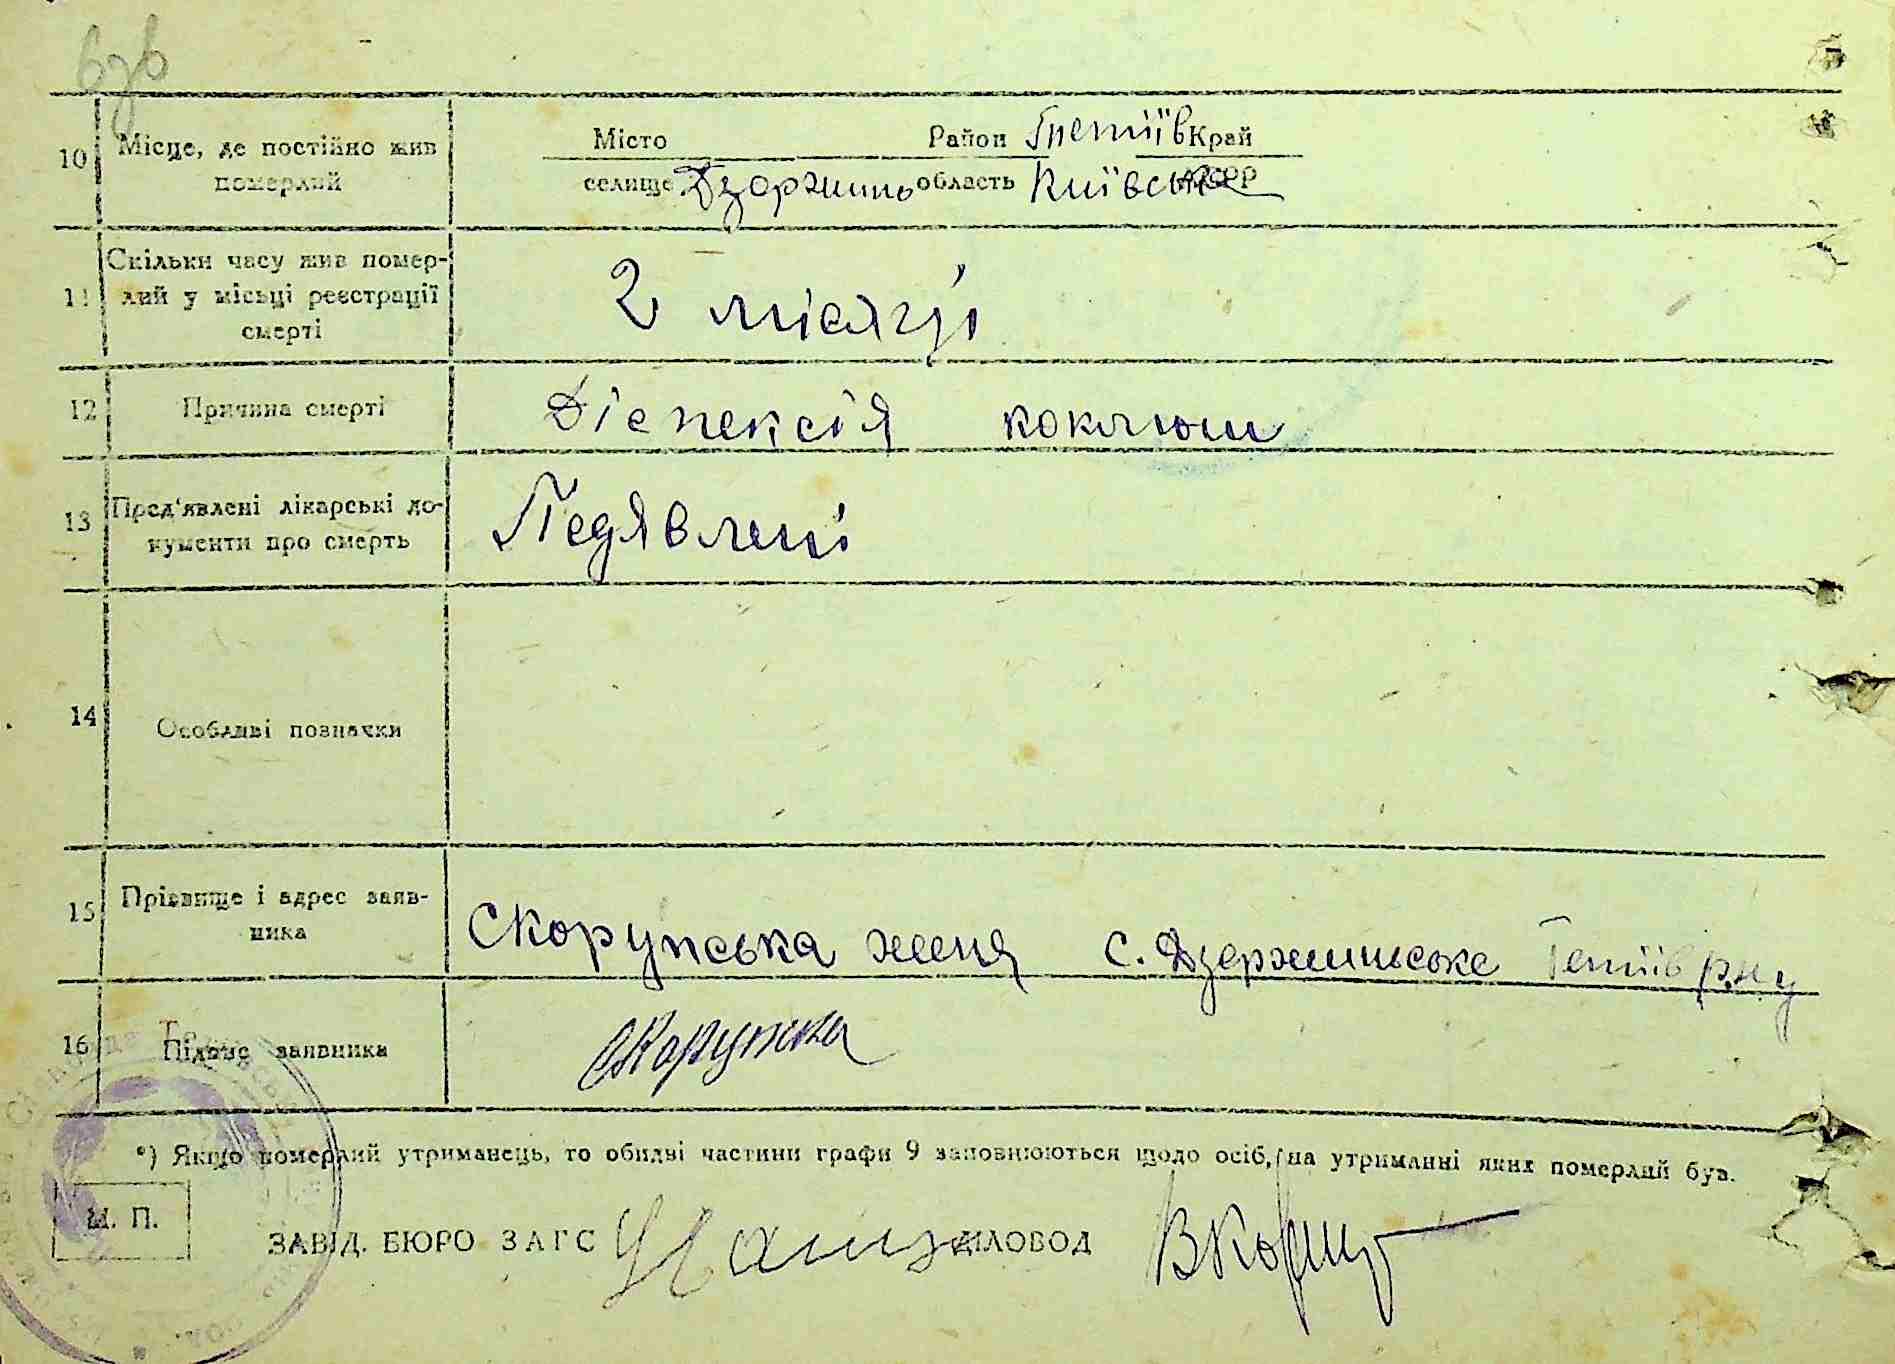 10 Місце, де постійно жив померлий
Місто Район Тетіїв Край
селище Дзержинь область Київська АРСР
11 Скільки часу жив померлий у місьці реєстрації смерті
2 місяці
12 Причина смерті
Діспексія коклюш
13 Пред'явлені лікарські документи про смерть
Педявлені
14 Особливі позначки
15 Прізвище і адрес заявника
Скорупська женя с. Дзержинське Тетіїв р.ну
16 Підпис заявника
Скорупска
*) Якщо померлий утриманець, то обидві частини графи 9 заповнюються щодо осіб, на утриманні яких померлий був.
М. П.
ЗАВІД. БЮРО ЗАГС ДІЛОВОД